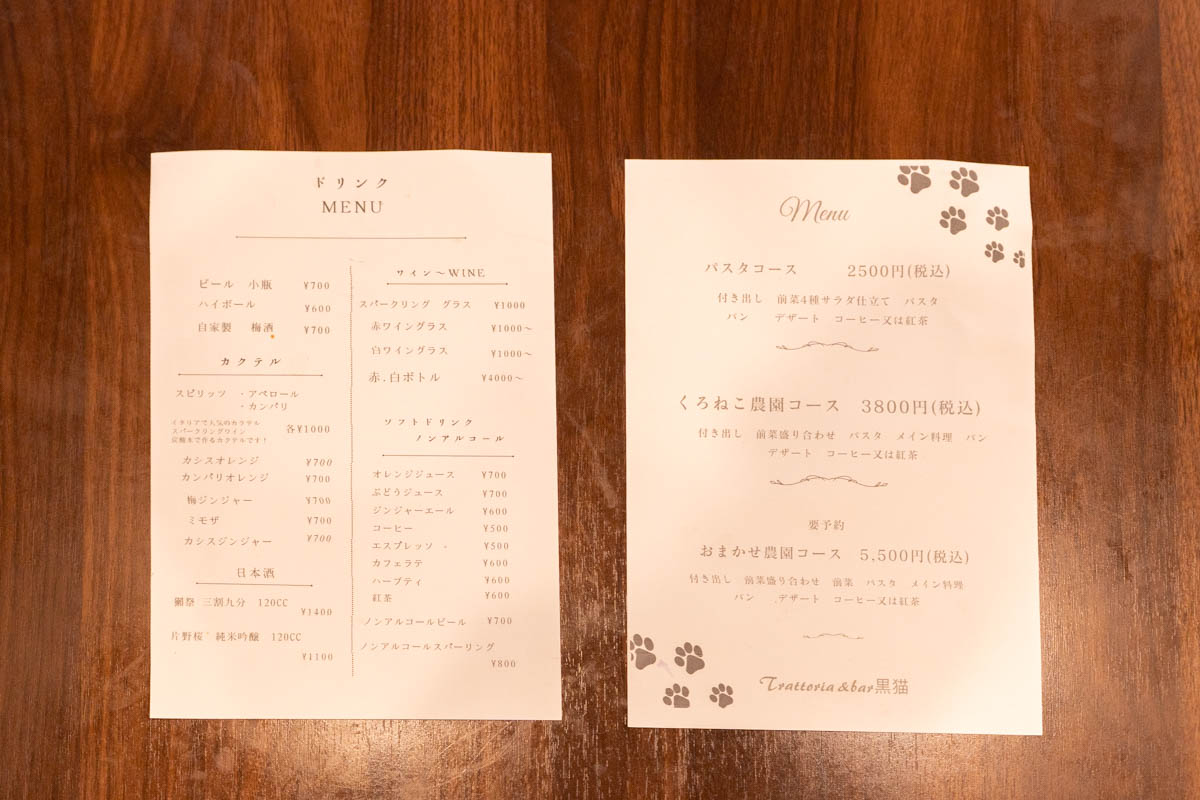 ドリンク
MENU
ビール 小瓶 ¥700
ハイボール ¥600
自家製 梅酒 ¥700
カクテル
スピリッツ ・アペロール
・カンパリ
イタリアで人気のカクテル
スパークリングワイン
炭酸水で作るカクテルです！
各¥1000
カシスオレンジ ¥700
カンパリオレンジ ¥700
梅ジンジャー ¥700
ミモザ ¥700
カシスジンジャー ¥700
日本酒
獺祭 三割九分 120CC
¥1400
片野桜 純米吟醸 120CC
¥1100
ワイン～WINE
スパークリング グラス ¥1000
赤ワイングラス ¥1000～
白ワイングラス ¥1000～
赤.白ボトル ¥4000～
ソフトドリンク
ノンアルコール
オレンジジュース ¥700
ぶどうジュース ¥700
ジンジャーエール ¥600
コーヒー ¥500
エスプレッソ ¥500
カフェラテ ¥600
ハーブティ ¥600
紅茶 ¥600
ノンアルコールビール ¥700
ノンアルコールスパーリング
¥800
Menu
パスタコース 2500円(税込)
付き出し 前菜4種サラダ仕立て パスタ
パン デザート コーヒー又は紅茶
くろねこ農園コース 3800円(税込)
付き出し 前菜盛り合わせ パスタ メイン料理 パン
デザート コーヒー又は紅茶
要予約
おまかせ農園コース 5,500円(税込)
付き出し 前菜盛り合わせ 前菜 パスタ メイン料理
パン デザート コーヒー又は紅茶
Trattoria &bar黒猫